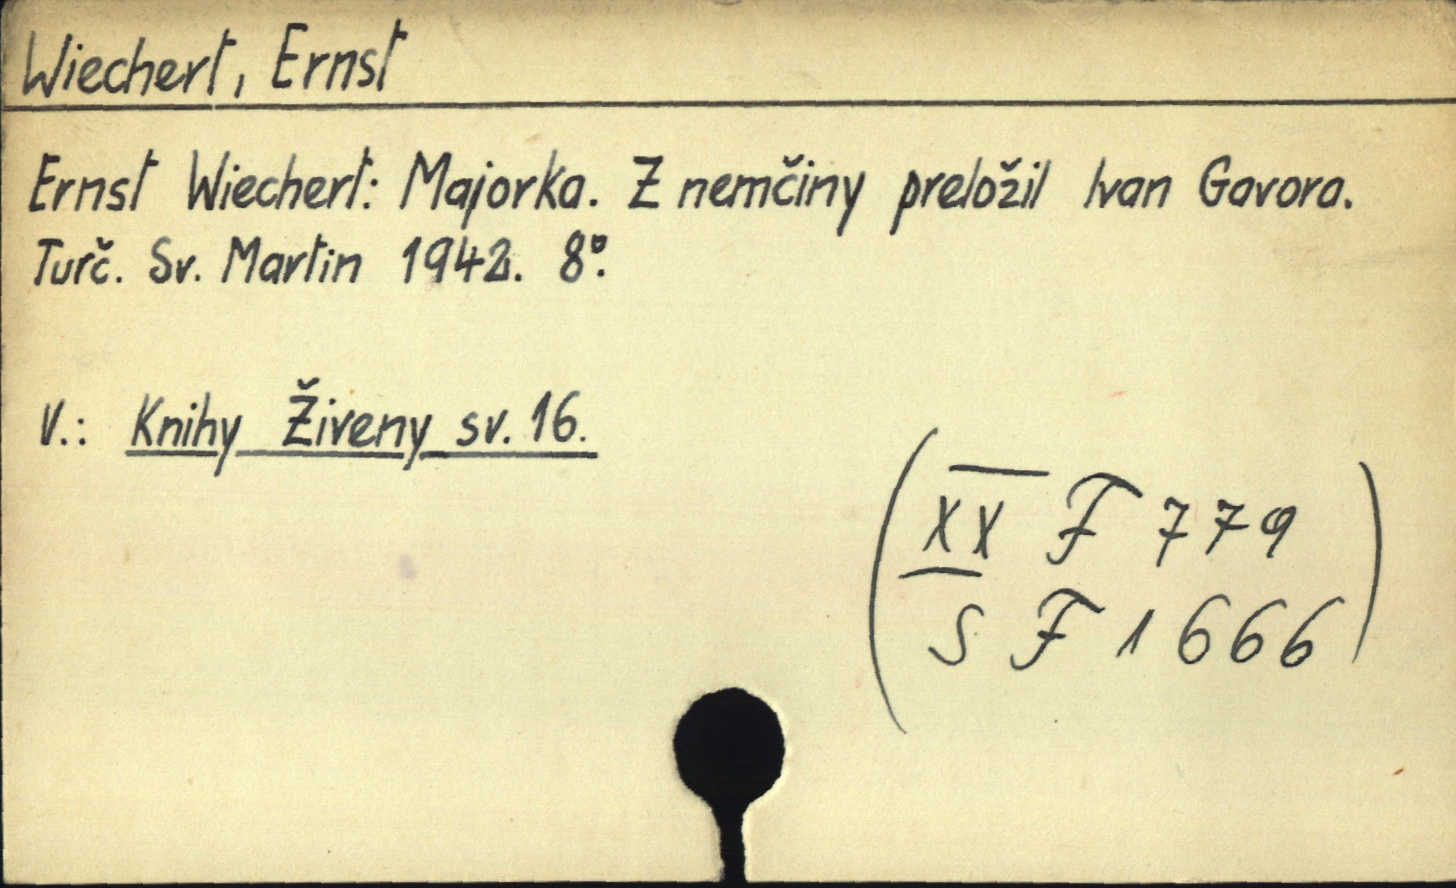 Wiechert, Ernst
Ernst Wiechert: Majorka. Z nemčiny preložil Ivan Gavora.
Turč. Sv. Martin 1942. 8°.
V.: Knihy Živeny sv. 16.
(XX F 779
S F 1666)